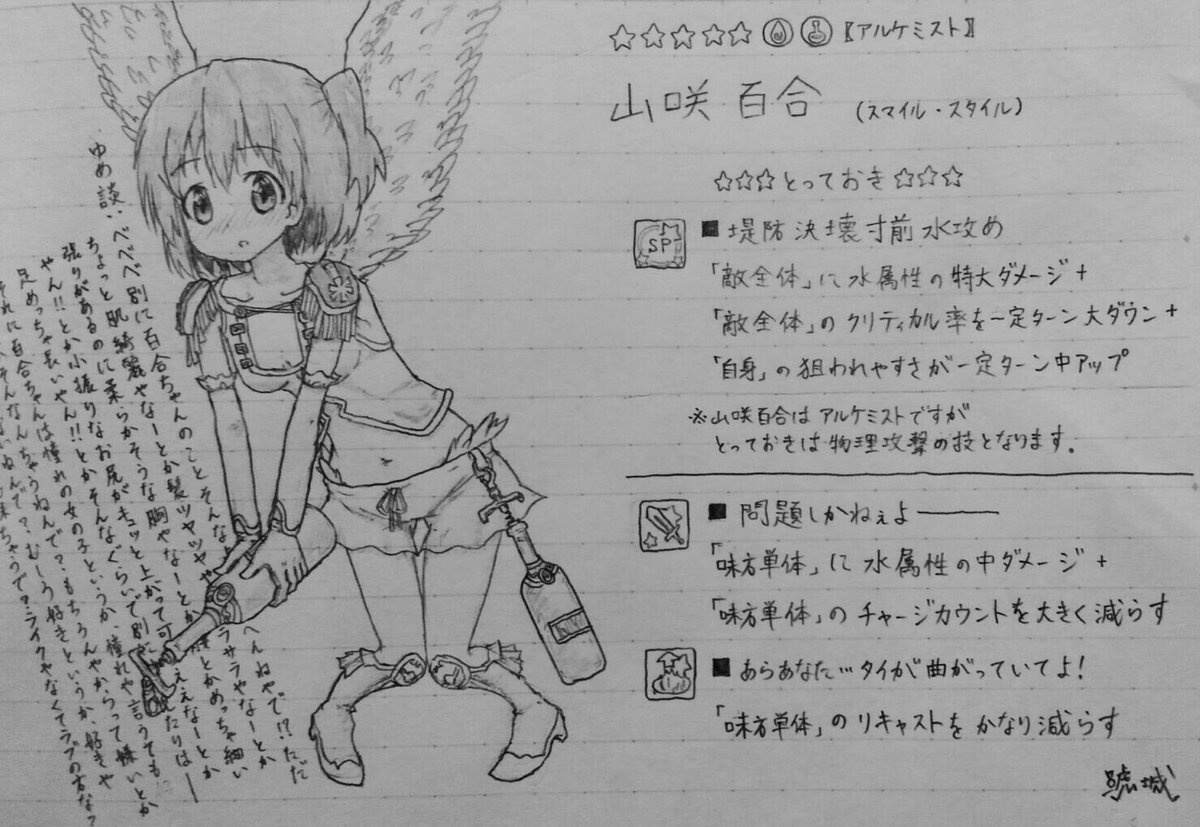 ☆☆☆☆☆ 〖アルケミスト〗
山咲 百合 (スマイル・スタイル)
☆☆☆とっておき☆☆☆
SP
■堤防決壊寸前水攻め
「敵全体」に水属性の特大ダメージ+
「敵全体」のクリティカル率を一定ターン大ダウン+
「自身」の狙われやすさが一定ターン中アップ
※山咲百合はアルケミストですが
とっておきは物理攻撃の技となります.
■問題しかねぇよ———
「味方単体」に水属性の中ダメージ+
「味方単体」のチャージカウントを大きく減らす
■あらあなた…タイが曲がっていてよ!
「味方単体」のリキャストをかなり減らす
ゆめ談:ベベベ別に百合ちゃんのことそんな へんねやで!?ただ
ちょっと肌綺麗やなーとか髪ツヤツヤ ラサラやなーとか
張りがあるのに柔らかそうな胸やなーとか とかめっちゃ細い
やん!!とか小振りなお尻がキュッと上がって可 ええなーとか
足めっちゃ長いやん!!とかそんなぐらいで別に したりは—
それに百合ちゃんは憧れの女の子というか、憧れや言うても
そんなんちゃうねんで?、もちろんやからって嫌いとか
ねんで?、むしろ好きというか、好きや
味ちゃうで?ライクやなくてラブの方な?